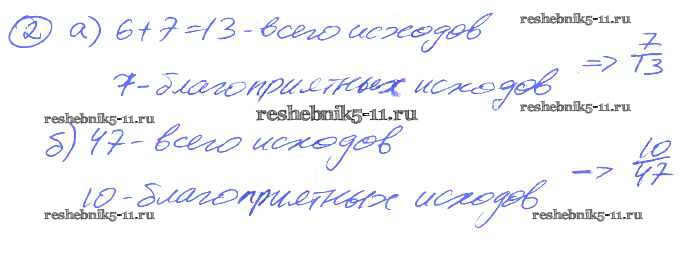 reshebnik5-11.ru
② а) 6+7=13 - всего исходов
7 - благоприятных исходов => 7/13
reshebnik5-11.ru reshebnik5-11.ru
reshebnik5-11.ru
б) 47 - всего исходов
10 - благоприятных исходов -> 10/47
reshebnik5-11.ru reshebnik5-11.ru